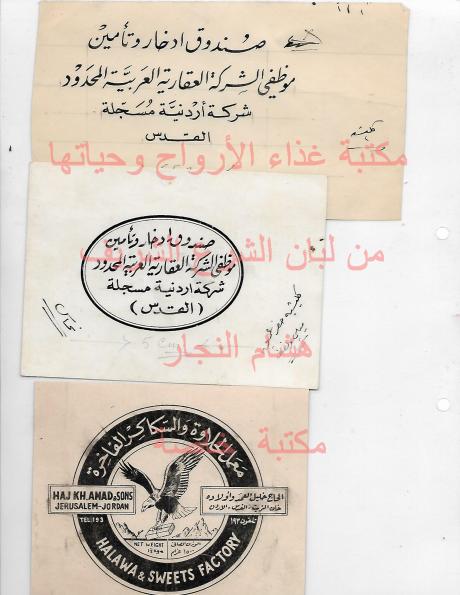 صندوق ادخار وتأمين
موظفي الشركة العقارية العربية المحدود
شركة أردنية مسجلة
القدس
مكتبة غذاء الأرواح وحياتها
صندوق ادخار وتأمين
موظفي الشركة العقارية العربية المحدود
شركة اردنية مسجلة
(القدس)
نحاس
5 cm
من لبنان
هشام النجار
معمل حلاوة والسكاكر الفاخرة
مكتبة خاصة
HAJ KH. AMAD & SONS
JERUSALEM-JORDAN
TEL: 193
الحاج خليل العمد واولاده
خان الزيت - القدس - الاردن
تلفون ١٩٣
NET WEIGHT
الوزن الصافي
HALAWA & SWEETS FACTORY